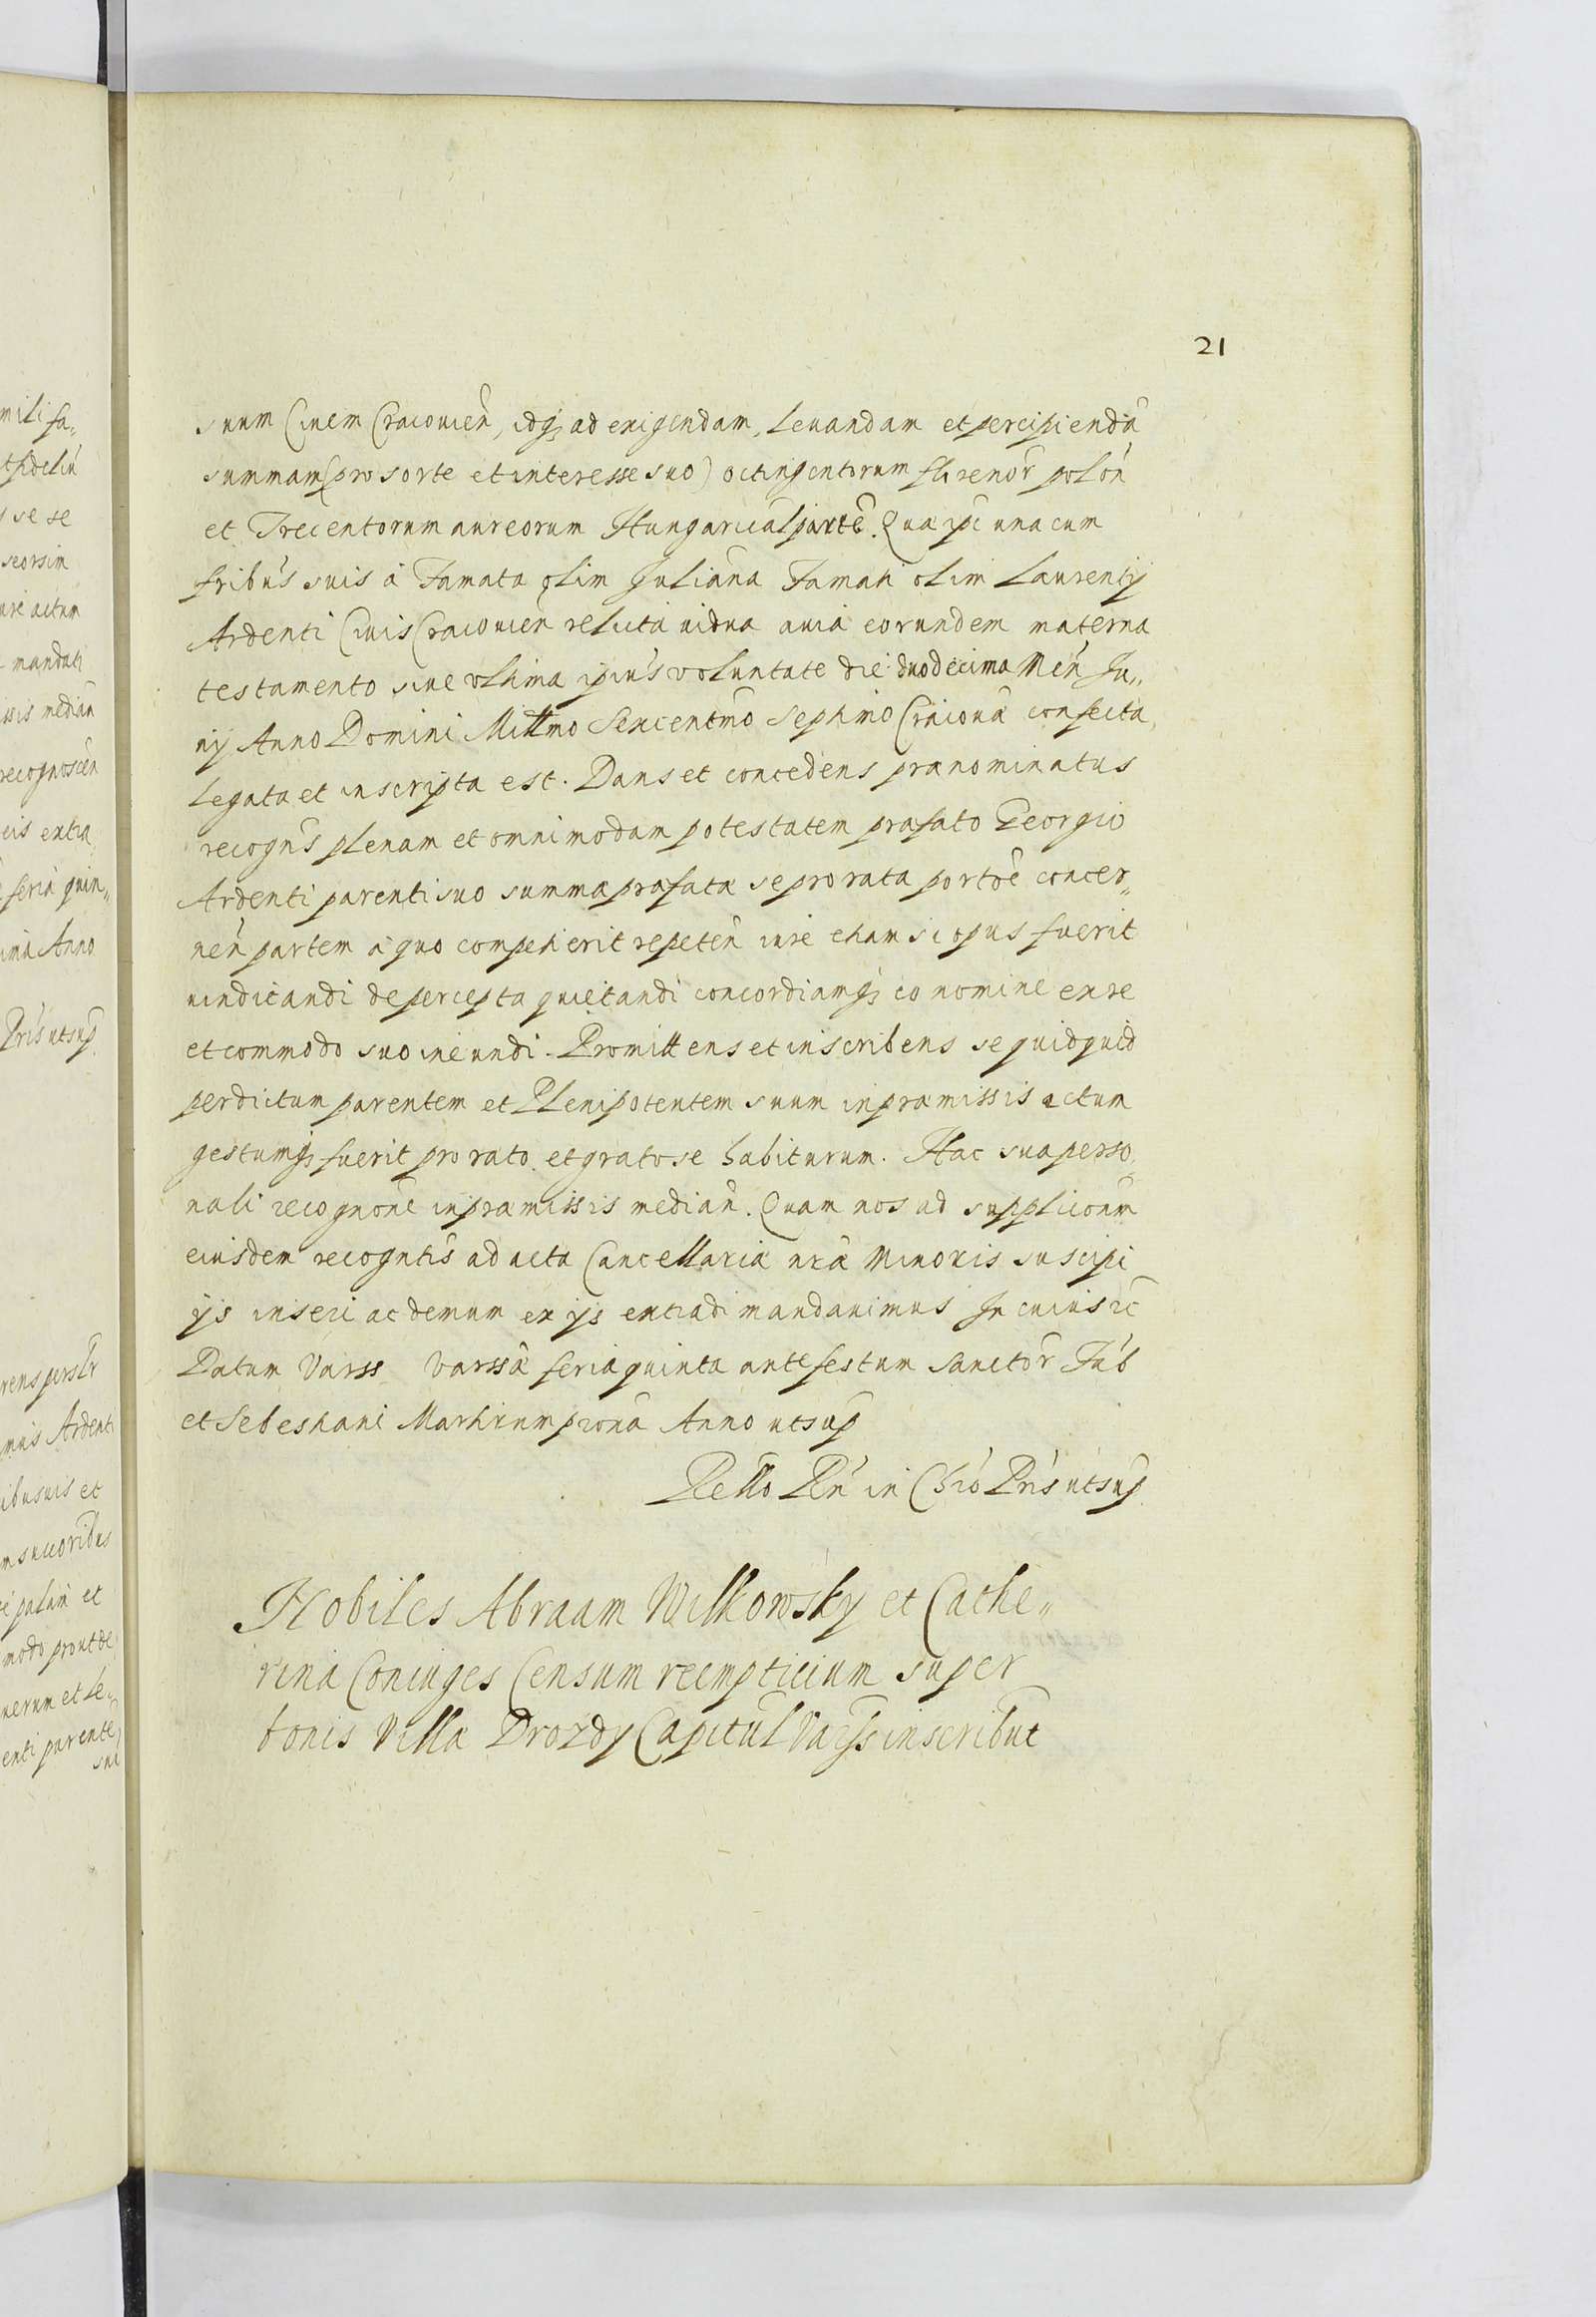 21
suum Ciuem Cracouień, idq; ad exigendam, leuandam et percipiendā
summam (pro sorte et interesse suo) octingentorum florenor̄ polon̄
et Trecentorum aureorum Hungarical partē. Quæ ipi unacum
fribus suis à Famata olim Juliana Famati olim Laurentij
Ardenti Ciuis Cracouień relicta uidua auia eorundem materna
testamento siue ultima ipius voluntate die duodecima Meń Ju„
nij Anno Domini Millmo Sexcentmo Septimo Cracouiæ confecta,
Legata et inscripta est. Dans et concedens prænominatus
recogns plenam et omnimodam potestatem præfato Georgio
Ardenti parenti suo summa præfatæ se pro rata portōe concer„
neń partem à quo competierit repeteń iure etiam si opus fuerit
uindicandi de percepta quietandi concordiamq; eo nomine ex re
et commodo suo ineundi. Promittens et inscribens se quidquid
per dictum parentem et Plenipotentem suum in præmissis actum
gestumq; fuerit pro rato et grato se habiturum. Hac sua perso„
nali recognōne in præmissis mediań. Quam nos ad supplicōnm
eiusdem recogntis ad acta Cancellariæ nræ Minoris suscipi
ijs inseri ac demum ex ijs extradi mandauimus In cuius rc
Datum Varss Varssæ feria quinta ante festum Sanctor̄ Fab
et Sebestiani Martirum proxa Anno ut sup
Relło Rń in Chro Pris ut sup
Nobiles Abraam Wilkowsky et Cathe„
rina Coniuges Censum reempticium super
bonis Villæ Drozdy Capitul Varss inscribut
mili fa„
t fideliń
se se
seorsim
ure actum
mandati
ssis mediań
recognosceń
eis extra
feria quin„
ima Anno
Pris ut sup
rens perslr
mus Ardenti
ibus uis et
m succoribus
palam et
modo prout de
uerum et le„
enti parente
sui